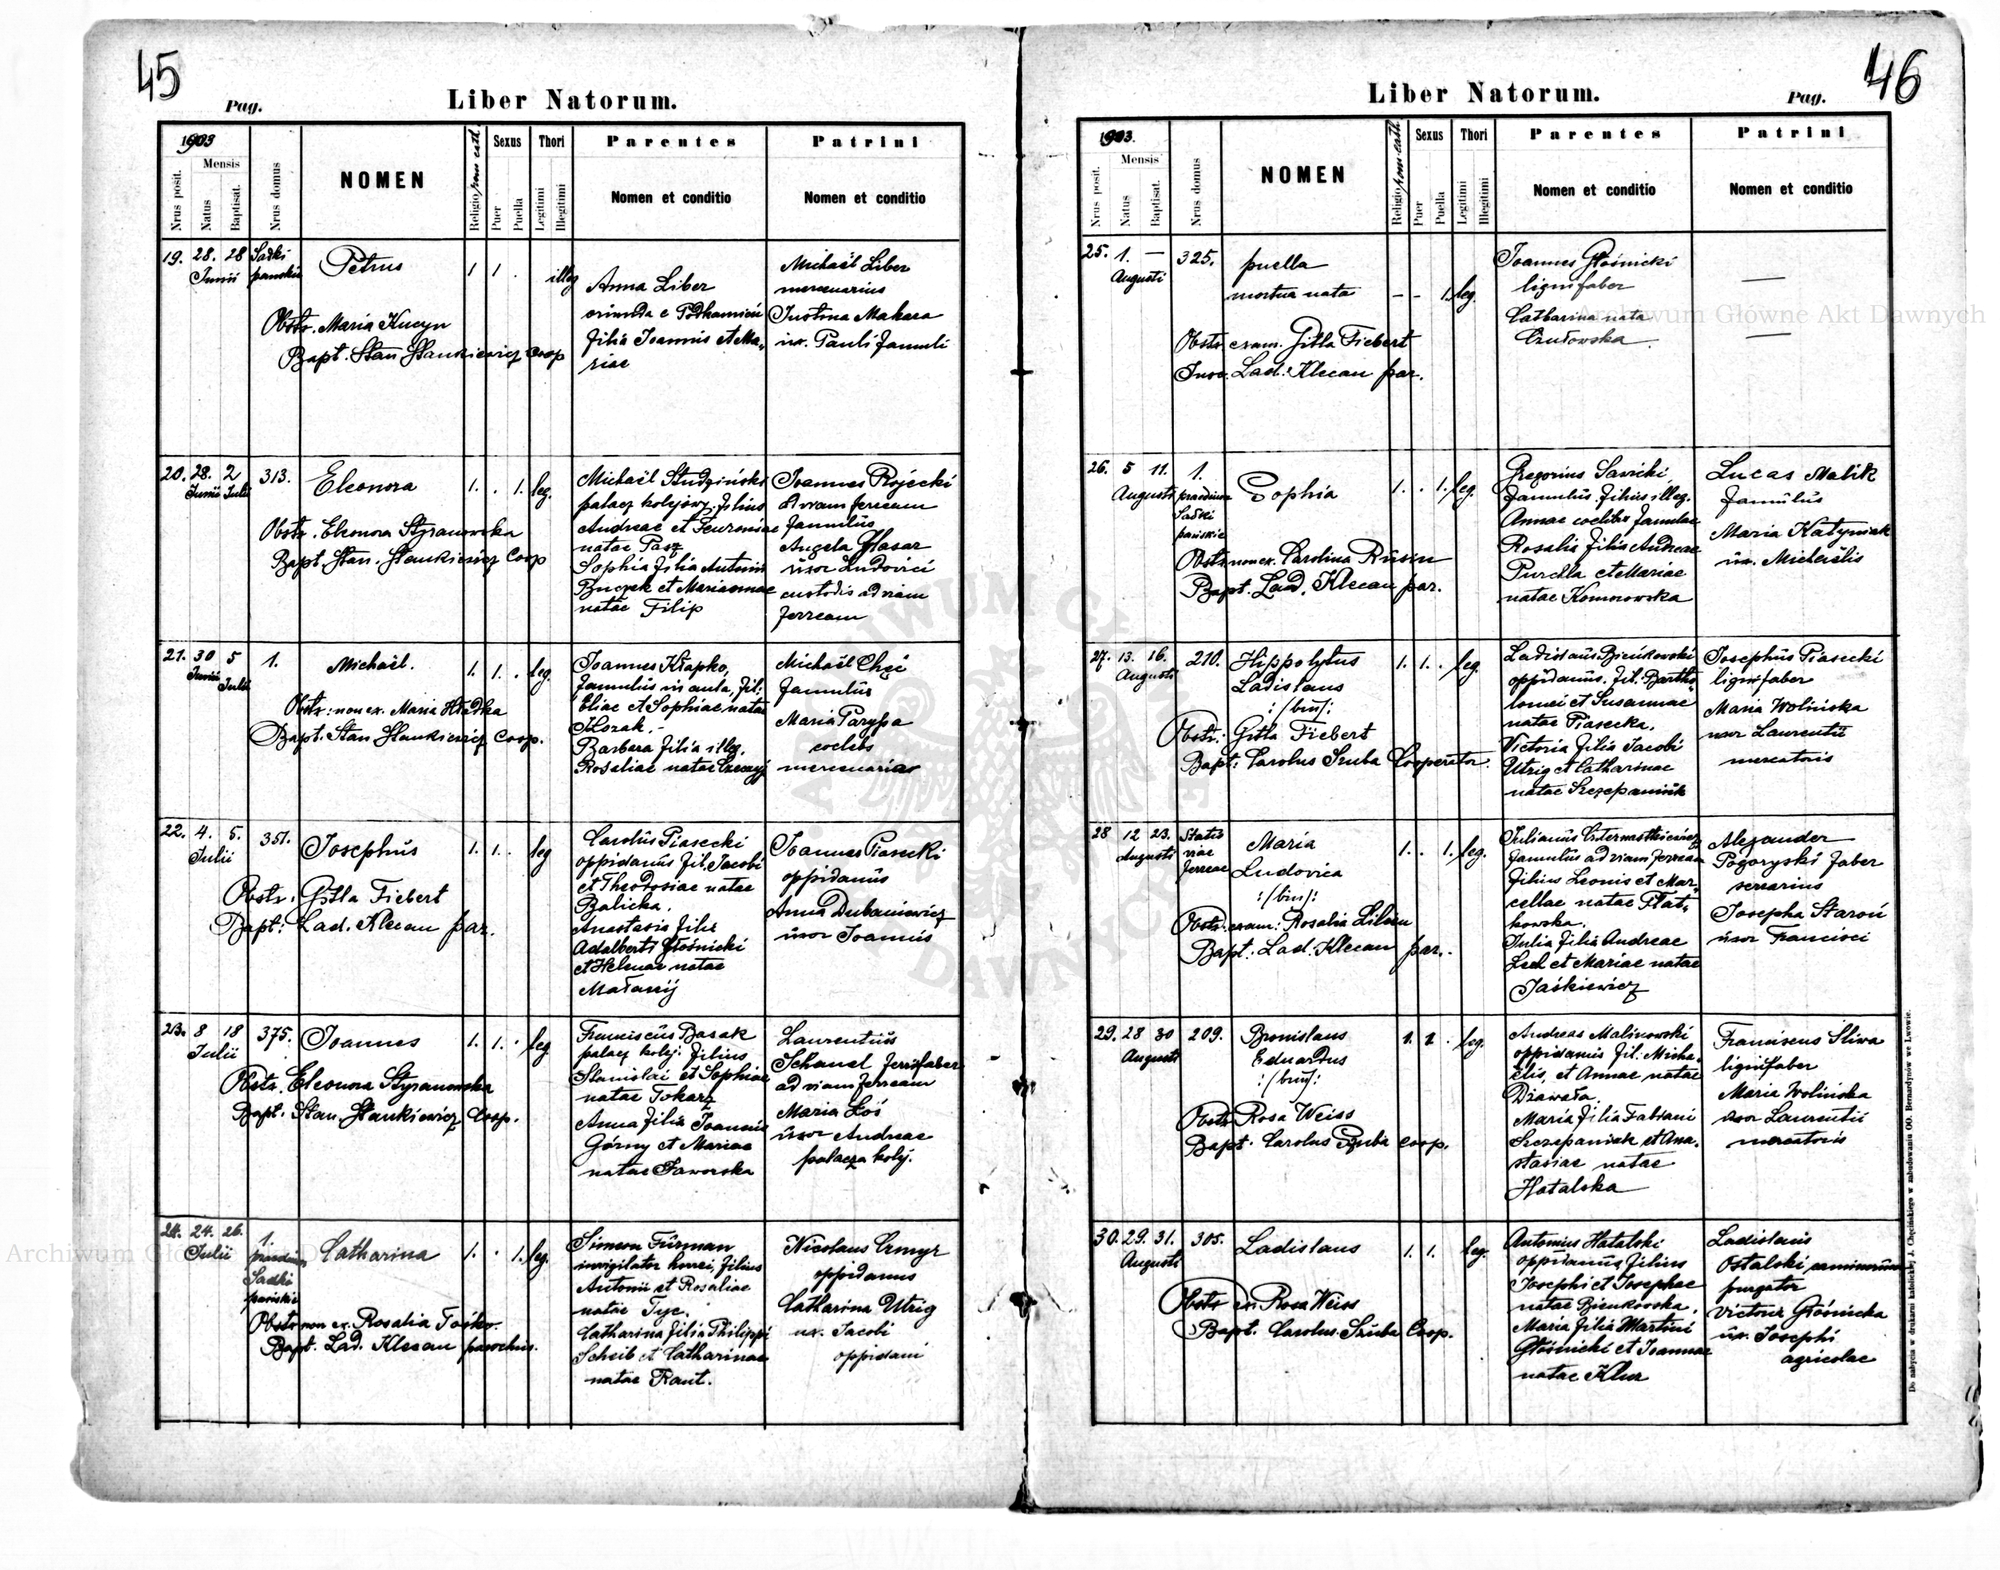 45
Pag.
Liber Natorum.
1903
Mensis
Nrus posit.
Natus
Baptisat.
Nrus domus
NOMEN
Religio rom. cath.
Sexus
Puer
Puella
Thori
Legitimi
Illegitimi
Parentes
Nomen et conditio
Patrini
Nomen et conditio
19. 28. 28
Junii
Sadki
Petrus
1 1 . illeg
Anna Liber
oriunda e Podkamień
filia Joannis et Ma-
riae
Michaël Liber
mercenarius
Justina Makara
ux. Pauli famuli
Obstr. Maria Kucyn
Bapt. Stan Stankiewicz Coop
20. 28. 2
Junii Julii
313.
Eleonora
1. . 1. leg.
Michaël Studziński
palacz kolejowy, filius
Andreae et
natae Pasz
Sophia filia Antonii
Buczek et Mariannae
natae Filip
Joannes Rojecki
ad viam ferream
famulus
Angela Hasar
uxor Ludovici
custodis ad viam
ferream
Obstr. Eleonora Styranowska
Bapt. Stan. Stankiewicz Coop
21. 30 5
Junii Julii
1.
Michaël.
1. 1. . leg.
Joannes Kłapko,
famulus in aula, fil:
Eliae et Sophiae natae
Kozak.
Barbara filia illeg.
Rosaliae natae
Michaël Chęć
famulus
Maria Parypa
coelebs
mercenaria
Obstr: non ex. Maria Hładka
Bapt. Stan Stankiewicz Coop.
22. 4. 5.
Julii
351.
Josephus
1. 1. . leg
Carolus Piasecki
oppidanus fil. Jacobi
et Theodosiae natae
Balicka.
Anastasia filia
Adalberti Głośnicki
et Helenae natae
Małanij
Joannes Piasecki
oppidanus
Anna Dubaniewicz
uxor Joannis
Obstr. Gitla Fiebert
Bapt: Lad. Klecan par.
23. 8 18
Julii
375.
Joannes
1. 1. . leg
Franciscus Basak
palacz kolej. filius
Stanislai et Sophiae
natae Tokarz
Anna filia Joannis
Górny et Mariae
natae Jaworska
Laurentius
Schanel ferrifaber
ad viam ferream
Maria Łoś
uxor Andreae
palacza kolj.
Obstr. Eleonora Styranowska
Bapt. Stan. Stankiewicz Coop.
24. 24. 26.
Julii
1.
praedium
Sadki
pańskie
Catharina
1. . 1. leg.
Simeon Fürman
invigilator horrei, filius
Antonii et Rosaliae
natae Tyc.
Catharina filia Philippi
Scheib et Catharinae
natae Kraut.
Nicolaus Crmyr
oppidanus
Catharina Utrig
ux. Jacobi
oppidani
Obstr non ex. Rosalia
Bapt. Lad. Klecan parochus.
46
Liber Natorum.
Pag.
1903.
Mensis
Nrus posit.
Natus
Baptisat.
Nrus domus
NOMEN
Religio rom. cath.
Sexus
Puer
Puella
Thori
Legitimi
Illegitimi
Parentes
Nomen et conditio
Patrini
Nomen et conditio
25. 1. —
Augusti
325.
puella
mortua nata
– – 1. leg.
Joannes Głośnicki
lignifaber
Catharina nata
Czułowska.
—
—
Obstr. exam. Gitla Fiebert
Lad. Klecan par.
26. 5 11.
Augusti
1.
praedium
Sadki
pańskie
Sophia
1. . 1. leg.
Gregorius Savicki,
famulus. filius illeg.
Annae coelibis famulae
Rosalia filia Andreae
Purdla et Mariae
natae Komorowska
Lucas Malik
famulus
Maria Katyniak
ux. Michaëlis
Obstr. non ex. Carolina Rusin
Bapt. Lad. Klecan par.
27. 13. 16.
Augusti
210.
Hippolytus
Ladislaus
:/bin/:
1. 1. . leg.
Ladislaus Bieńkowski
oppidanus. fil. Bartho-
lomei et Susannae
natae Piasecka.
Victoria filia Jacobi
Utrig et Catharinae
natae Szczepaniak
Josephus Piasecki
lignifaber
Maria Wolińska
uxor Laurentii
mercatoris
Obstr: Gitla Fiebert
Bapt: Carolus Szuba Cooperator.
28 12 23.
Augusti
Statio
viae
ferreae
Maria
Ludovica
:/bin/:
1. . 1. leg.
Julianus
famulus ad viam ferream
filius Leonis et Mar-
cellae natae Flat-
kowska.
Julia filia Andreae
Lech et Mariae natae
Jaśkiewicz
Alexander
Pogoryski faber
serrarius
Josepha Staroń
uxor Francisci
Obstr. exam: Rosalia
Bapt. Lad. Klecan par.
29. 28 30
Augusti
209.
Bronislaus
Eduardus
:/bin/:
1. 1. . leg.
Andreas Malinowski
oppidanus fil. Micha-
ëlis, et Annae natae
Dziawała.
Maria filia Fabiani
Szczepaniak et Ana-
stasiae natae
Hatalska
Franciscus Sliwa
lignifaber
Maria Wolińska
uxor Laurentii
mercatoris
Obstr. Rosa Weiss
Bapt. Carolus Szuba coop.
30. 29. 31.
Augusti
305.
Ladislaus
1. 1. leg.
Antonius Hatalski
oppidanus filius
Josephi et Josephae
natae Bieńkowska.
Maria filia Martini
Głośnicki et Joannae
natae Klus
Ladislaus
Ostalski caminorum
purgator
Victoria Głośnicka
ux. Josephi
agricolae
Obstr. ex. Rosa Weiss
Bapt. Carolus Szuba Coop.
Do nabycia w drukarni katolickiej J. Chęcińskiego w zabudowaniu OO. Bernardynów we Lwowie.
Archiwum Główne Akt Dawnych